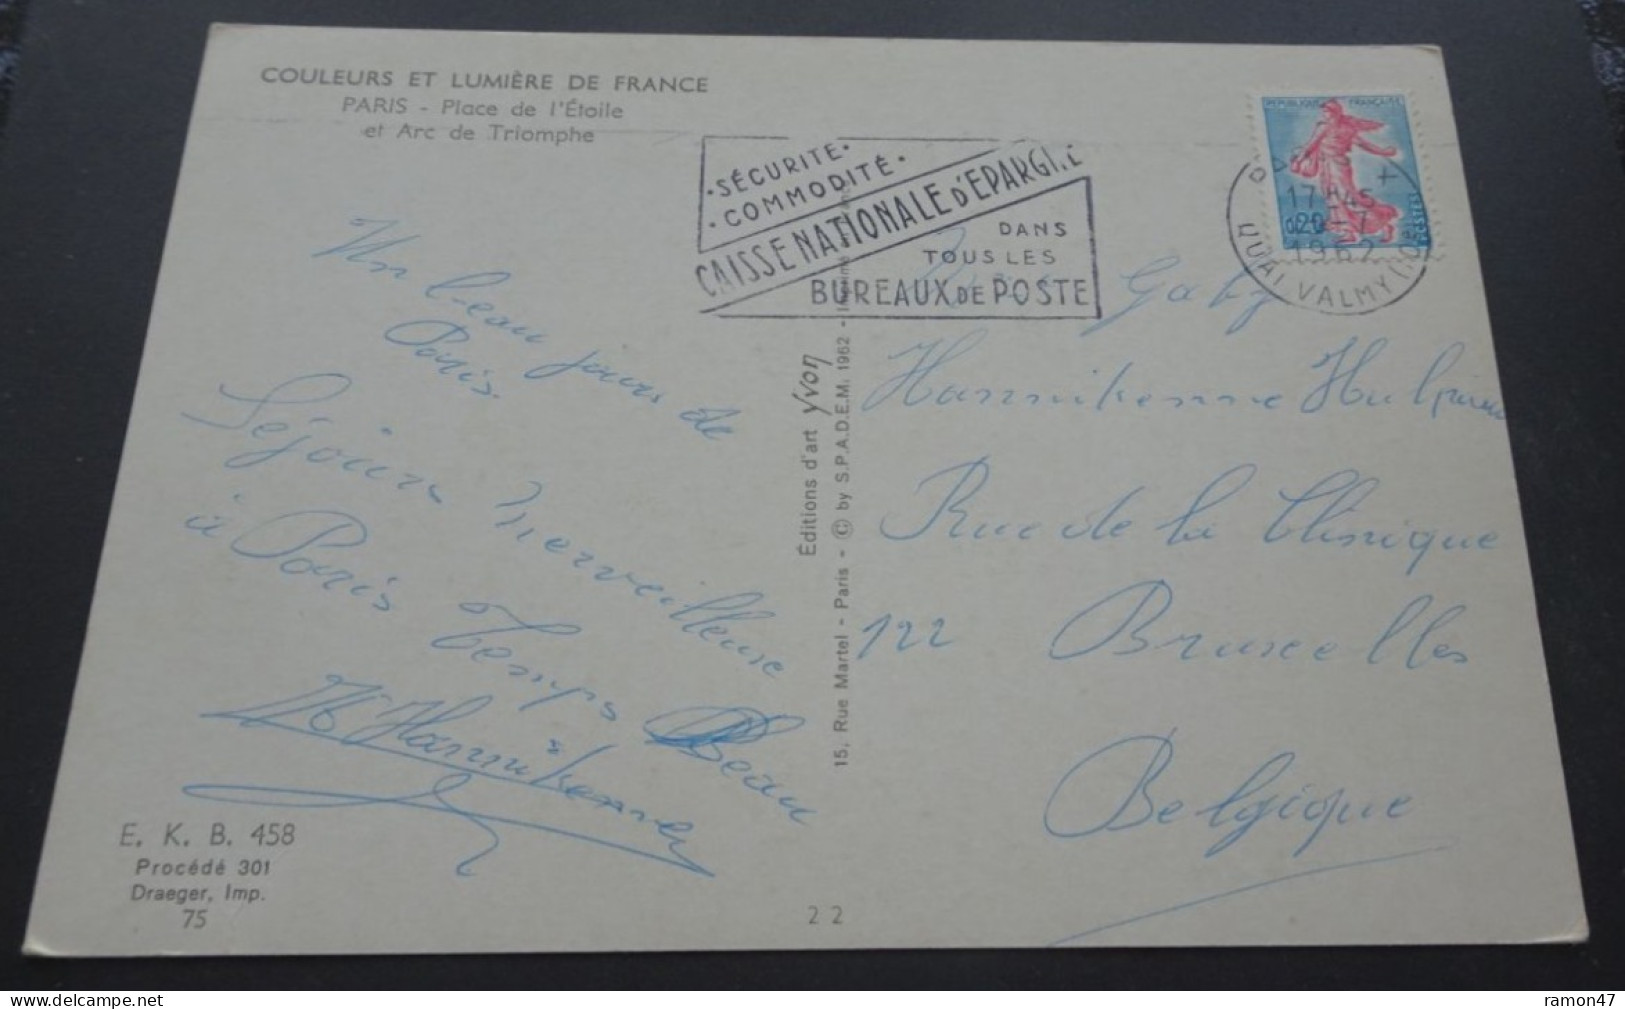 COULEURS ET LUMIÈRE DE FRANCE
PARIS - Place de l'Étoile
et Arc de Triomphe
·SÉCURITE·
·COMMODITÉ·
CAISSE NATIONALE D'EPARGNE
DANS
TOUS LES
BUREAUX DE POSTE
REPUBLIQUE FRANÇAISE
0,20
POSTES
17H45
20-7
1962
QUAI VALMY
Un beau jours de
Paris.
Séjours merveilleuse
à Paris Temps Beau
Hannikenne
Gaby
Hannikenne
Rue de la Clinique
122 Bruxelles
Belgique
Éditions d'art Yvon
15, Rue Martel - Paris - © by S.P.A.D.E.M. 1962 - Imprimé
E. K. B. 458
Procédé 301
Draeger, Imp.
75
22
delcampe.net
ramon47